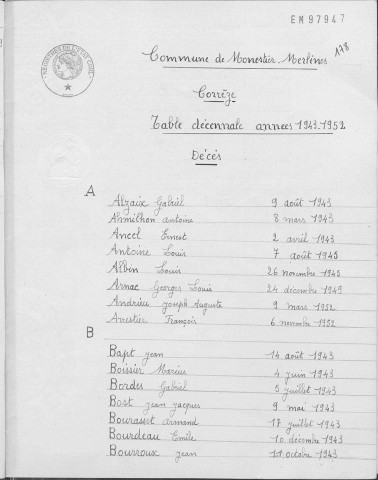 EM97947
178
Commune de Monestier-Merlines
Corrèze
Table décennale années 1943-1952
Décès
A
Alzaix Gabriel 9 août 1943
Amilhon antoine 8 mars 1943
Ancel Ernest 2 avril 1943
Antoine Louis 7 août 1945
Albin Louis 26 novembre 1945
Arnac Georges Louis 24 décembre 1949
Andrieu Joseph Auguste 9 mars 1952
Arvestier François 6 novembre 1952
B
Bapt Jean 14 août 1943
Boissier Marius 4 juin 1943
Bordes Gabriel 5 juillet 1943
Bost Jean Jacques 9 mai 1943
Bourasset armand 17 juillet 1943
Bourdeau Emile 10 décembre 1943
Bourroux Jean 11 octobre 1943